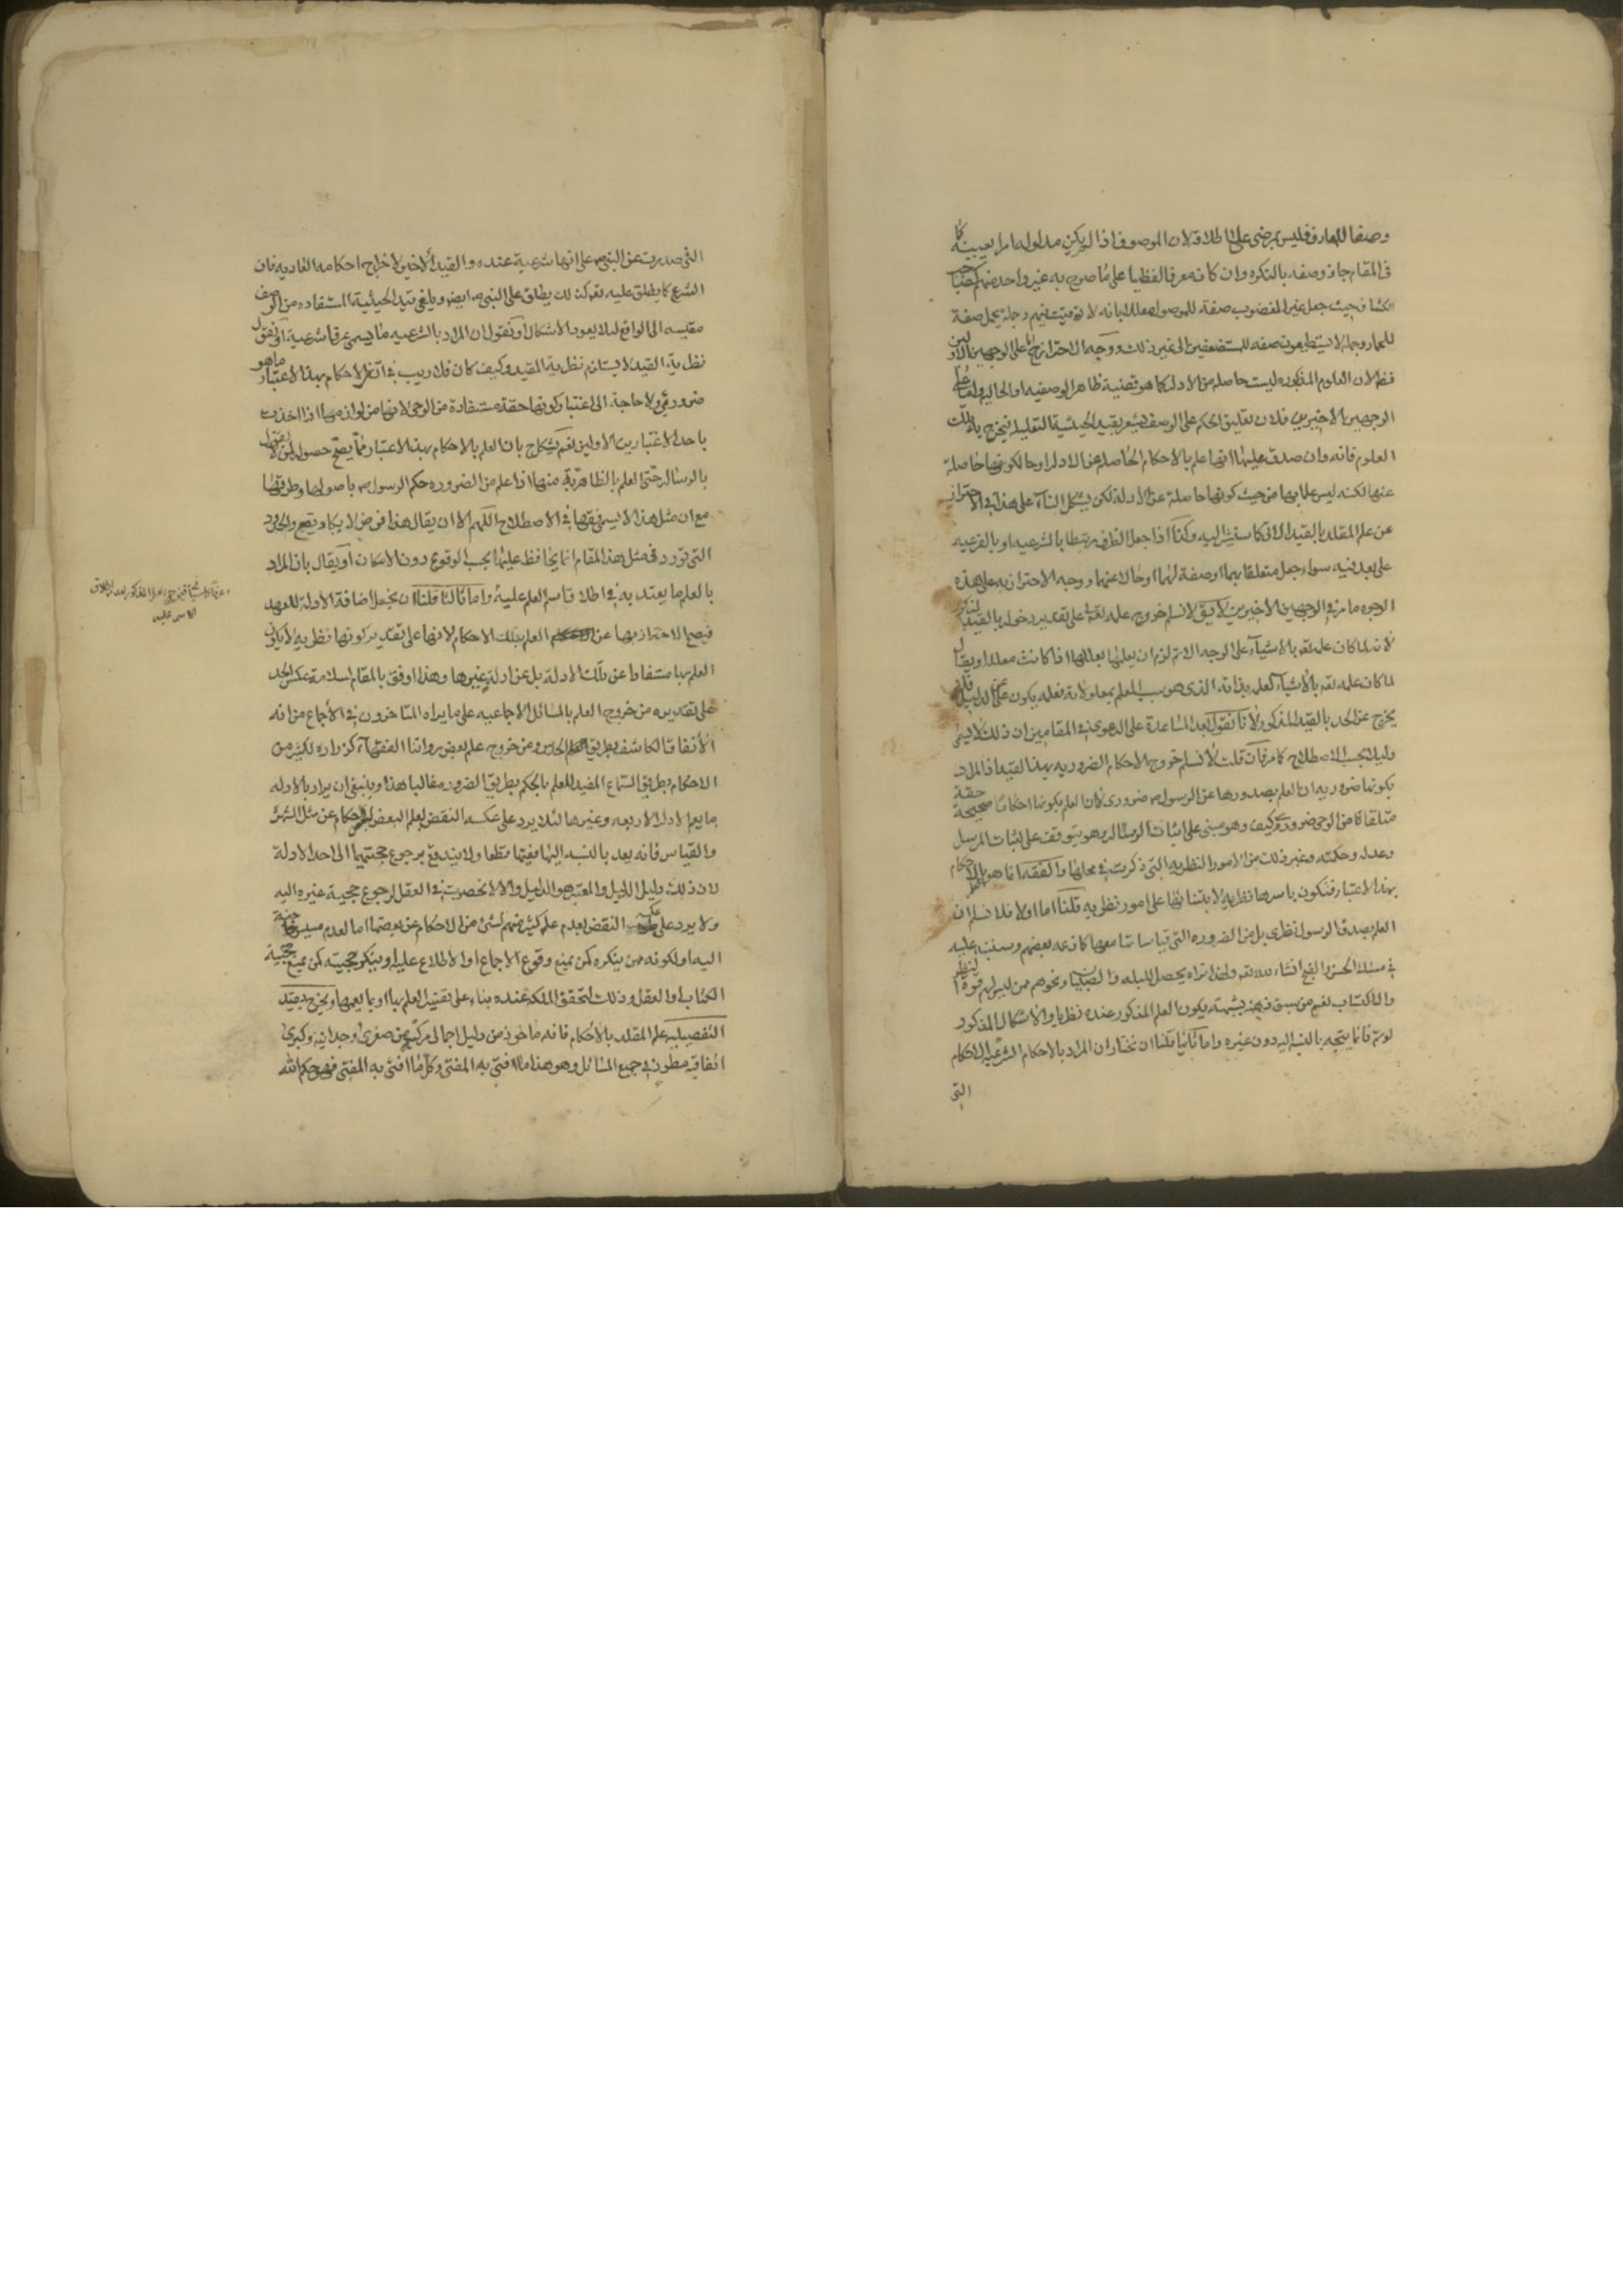 وصفا للمعارف فليس بمرضى على اطلاقه لان الموصوف اذا لم يكن مدلوله امرا بعينه كما
فى المقام جاز وصفه بالنكره وان كان معرفا لفظيا على ما صرح به غير واحد منهم كصاحب
الكشاف حيث جعل غير المغضوب صفة للموصول معللا بانه لا توقيت فيهم وجملة يحمل صفة
للحمار وجملة لا يستطيعون صفه للمستضعفين الى غير ذلك ووجه الاحتراز ح اما على الوجهين الاولين
فظ لان العلوم المذكوره ليست حاصله من الادله كما هو قضية ظاهر الوصفيه او الحاليه واما على
الوجهين الاخيرين فلان تعليق الحكم على الوصف يشعر بقيد الحيثية التعليليه فيخرج بذلك تلك
العلوم فانه وان صدق عليها انها علم بالاحكام الحاصله عن الادله او حال كونها حاصلة
عنها لكنه ليس علما بها من حيث كونها حاصلة عن الادله لكن يشكل البناء على هذا فى الاحتراز
عن علم المقلد بالقيد الاتى كما سنشير اليه وكذا اذا جعل الظرف مرتبطا بالشرعيه او بالفرعيه
على بعد فيه سواء جعل متعلقا بهما او صفة لهما او حالا عنهما ووجه الاحتراز به على هذه
الوجوه ما مر فى الوجهين الاخيرين لا يق لا نسلم خروج علمه تعه على تقدير دخوله بالقيد المذكور
لانه لما كان علمه تعه بالاشياء على الوجه الاتم لزم ان يعلمها بعللها اذا كانت معلله او يقال
لما كان علمه تعه بالاشياء لعلمه بذاته الذى هو سبب للعلم بمعلولاته فعلمه يكون عن الدليل فلا
يخرج عن الحد بالقيد المذكور لانا نقول بعد المساعدة على الدعوى فى المقامين ان ذلك لا يسمى
دليلا بحسب الاصطلاح كما مر فان قلت لا نسلم خروج الاحكام الضروريه بهذا القيد اذ المراد
بكونها ضروريه ان العلم بصدورها عن الرسول ص ضرورى لا ان العلم بكونها احكاما صحيحة حقة
متلقاة من الوحى ضرورى كيف وهو مبنى على اثبات الرساله وهو يتوقف على اثبات المرسل
وعدله وحكمته وغير ذلك من الامور النظريه التى ذكرت فى محالها والفقه انما هو العلم بالاحكام
بهذا الاعتبار فتكون باسرها نظرية لابتنائها على امور نظريه قلنا اما اولا فلا نسلم ان
العلم بصدق الرسول نظرى بل من الضروره التى قياساتها معها كما زعمه بعضهم وسننبه عليه
فى مسئلة الحسن والقبح انشاء الله تعه ولهذا تراه يحصل للبله والصبيان ونحوهم ممن ليس لهم قوة النظر
والاكتساب نعم من سبق ذهنه بشبهة يكون العلم المذكور عنده نظريا والاشكال المذكور
لو تم فانما يتجه بالنسبه اليه دون غيره واما ثانيا فلنا ان نختار ان المراد بالاحكام الشرعيه الاحكام
التى
التى صدرت عن النبى ص على انها شرعية عنده والقيد الاخير لاخراج احكامه العاديه فان
الشرع كما يطلق عليه تعه كذلك يطلق على النبى ص ايضا ويلغى قيد الحيثية المستفاده من الوصف
مقيسه الى الواقع لئلا يعود الاشكال او نقول ان المراد بالشرعيه ما يسمى عرفا شرعية او نقول
نظرية القيد لا يستلزم نظرية المقيد وكيف كان فلا ريب فى ان من الاحكام بهذا الاعتبار ما هو
ضرورى ولا حاجة الى اعتبار كونها حقة مستفادة من الوحى لانها من لوازمها اذا اخذت
باحد الاعتبارين الاولين نعم يشكل ح بان العلم بالاحكام بهذا الاعتبار مما يصح حصوله لمن لا يقول
بالرساله حتى العلم بالظاهرية منها اذا علم من الضروره حكم الرسول ص باصولها وطرقها
مع ان مثل هذا لا يسمى فقها فى الاصطلاح اللهم الا ان يقال هذا فرض لا يكاد يقع والحدود
التى تورد فى مثل هذا المقام انما يحافظ عليها بحسب الوقوع دون الامكان او يقال بان المراد
بالعلم ما يعتد به فى اطلاق اسم العلم عليه واما ثالثا فلنا ان نجعل اضافة الادلة للعهد
فيصح الاحتراز بها عن العلم بتلك الاحكام لانها على تقدير كونها نظريه لا يكون
العلم بها مستفادا عن تلك الادلة بل عن ادلة غيرها وهذا اوفق بالمقام لسلامة عكس الحد
على تقديره من خروج العلم بالمسائل الاجماعيه على ما يراه المتاخرون فى الاجماع من انه
الاتفاق الكاشف بطريق الحدس ومن خروج علم بعض رواتنا الفقهاء كزراره لكثير من
الاحكام بطريق السماع المفيد للعلم بالحكم بطريق الضروره غالبا هذا وينبغى ان يراد بالادله
ما يعم الادله الاربعه وغيرها لئلا يرد على عكسه النقض لعلم البعض لاحكام عن مثل الشهرة
والقياس فانه يعد بالنسبه اليها فقيها قطعا ولا يندفع برجوع حجيتهما الى احد الادلة
لان ذلك دليل الدليل والمعتبر هو الدليل والا لانحصرت فى العقل لرجوع حجية غيره اليه
ولا يرد على عكسه النقض بعدم علم كثير منهم لشئ من الاحكام عن بعضها اما لعدم مسيس حاجته
اليه او لكونه ممن ينكره كمن يمنع وقوع الاجماع او الاطلاع عليه او ينكر حجيته كمن يمنع حجية
الكتاب او العقل وذلك لتحقق الملكه عنده بناء على تفسير العلم بها او بما يعمها ويخرج بقيد
التفصيليه علم المقلد بالاحكام فانه ماخوذ من دليل اجمالى مركب من صغرى وجدانيه وكبرى
اتفاقيه مطرد فى جميع المسائل وهو هذا ما افتى به المفتى وكل ما افتى به المفتى فهو حكم الله